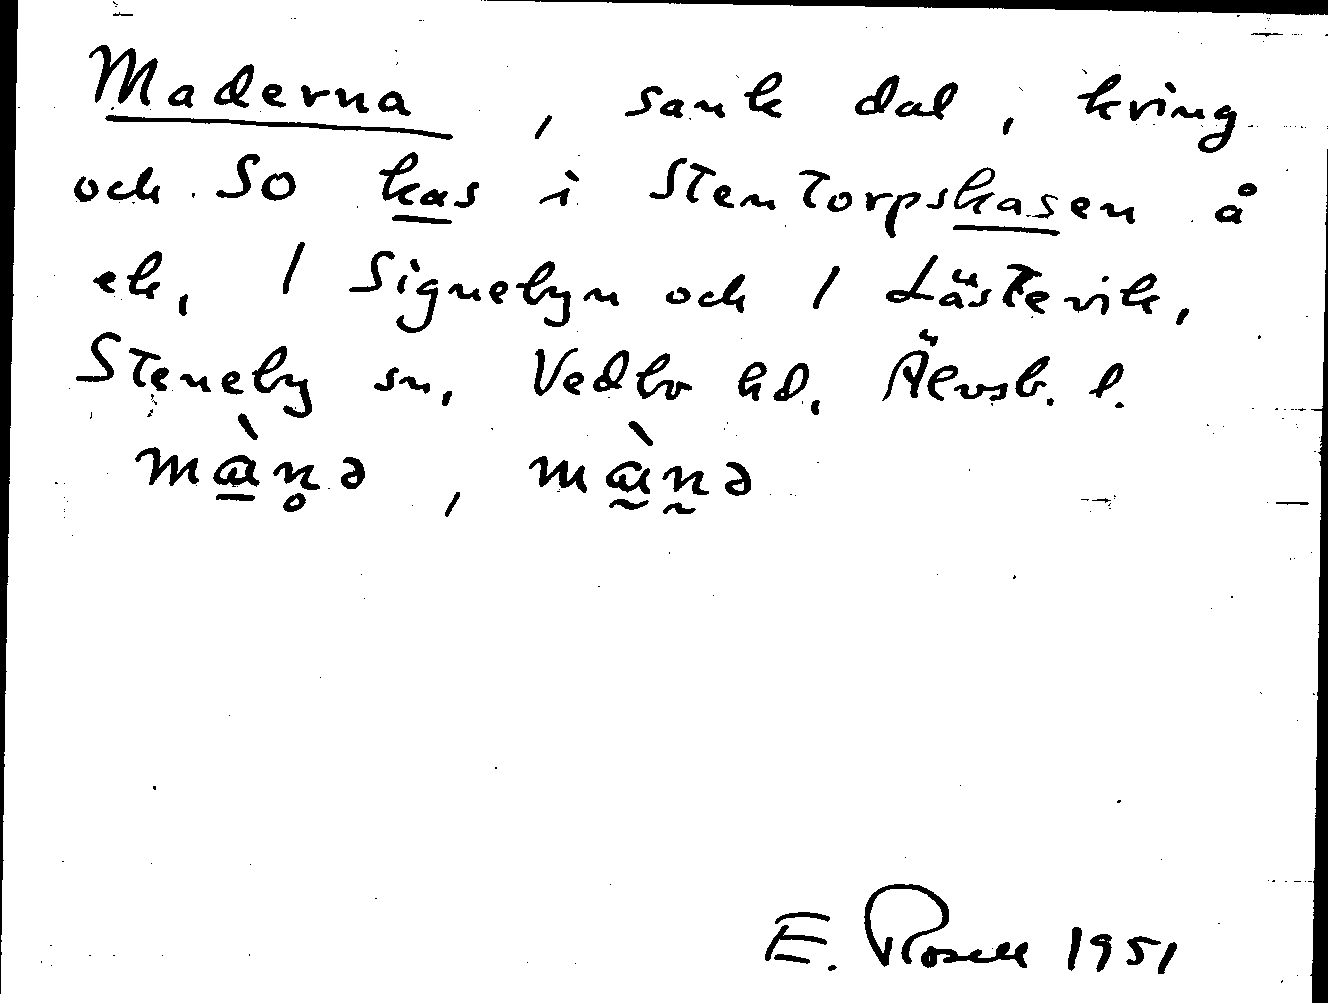 Maderna, sank dal, kring
och SO kas i Stentorpskasen å
ek, 1 Signebyn och 1 Låstevik,
Steneby sn, Vedbo hd, Älvsb. l.
mɑ̀n̥ə, mɑ̰̀n̰ə
E. Rosell 1951